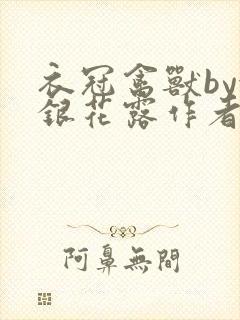 衣冠禽獸by
銀花露作者
阿鼻無間